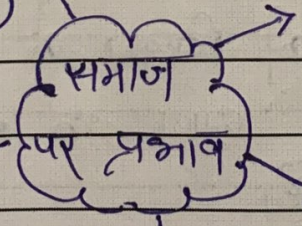 समाज
पर प्रभाव